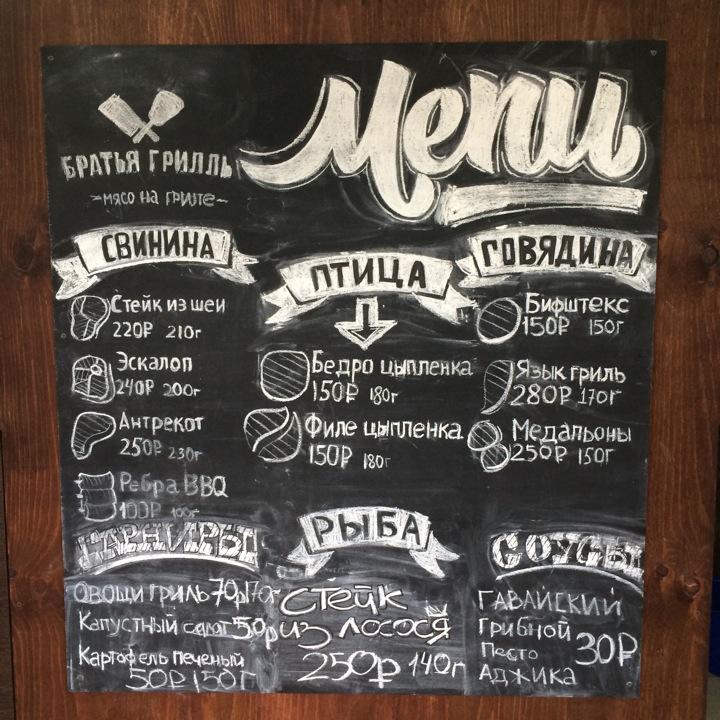 БРАТЬЯ ГРИЛЛЬ
~мясо на гриле~
Мепи
СВИНИНА
Стейк из шеи
220₽ 210г
Эскалоп
240₽ 200г
Антрекот
250₽ 230г
Ребра BBQ
100₽ 100г
ПТИЦА
Бедро цыпленка
150₽ 180г
Филе цыпленка
150₽ 180г
ГОВЯДИНА
Бифштекс
150₽ 150г
Язык гриль
280₽ 170г
Медальоны
250₽ 150г
ГАРНИРЫ
Овощи гриль 70р 170г
Капустный салат 50р
Картофель печеный
50₽ 150г
РЫБА
Стейк
из лосося
250₽ 140г
СОУСЫ
ГАВАЙСКИЙ
Грибной
Песто 30₽
Аджика